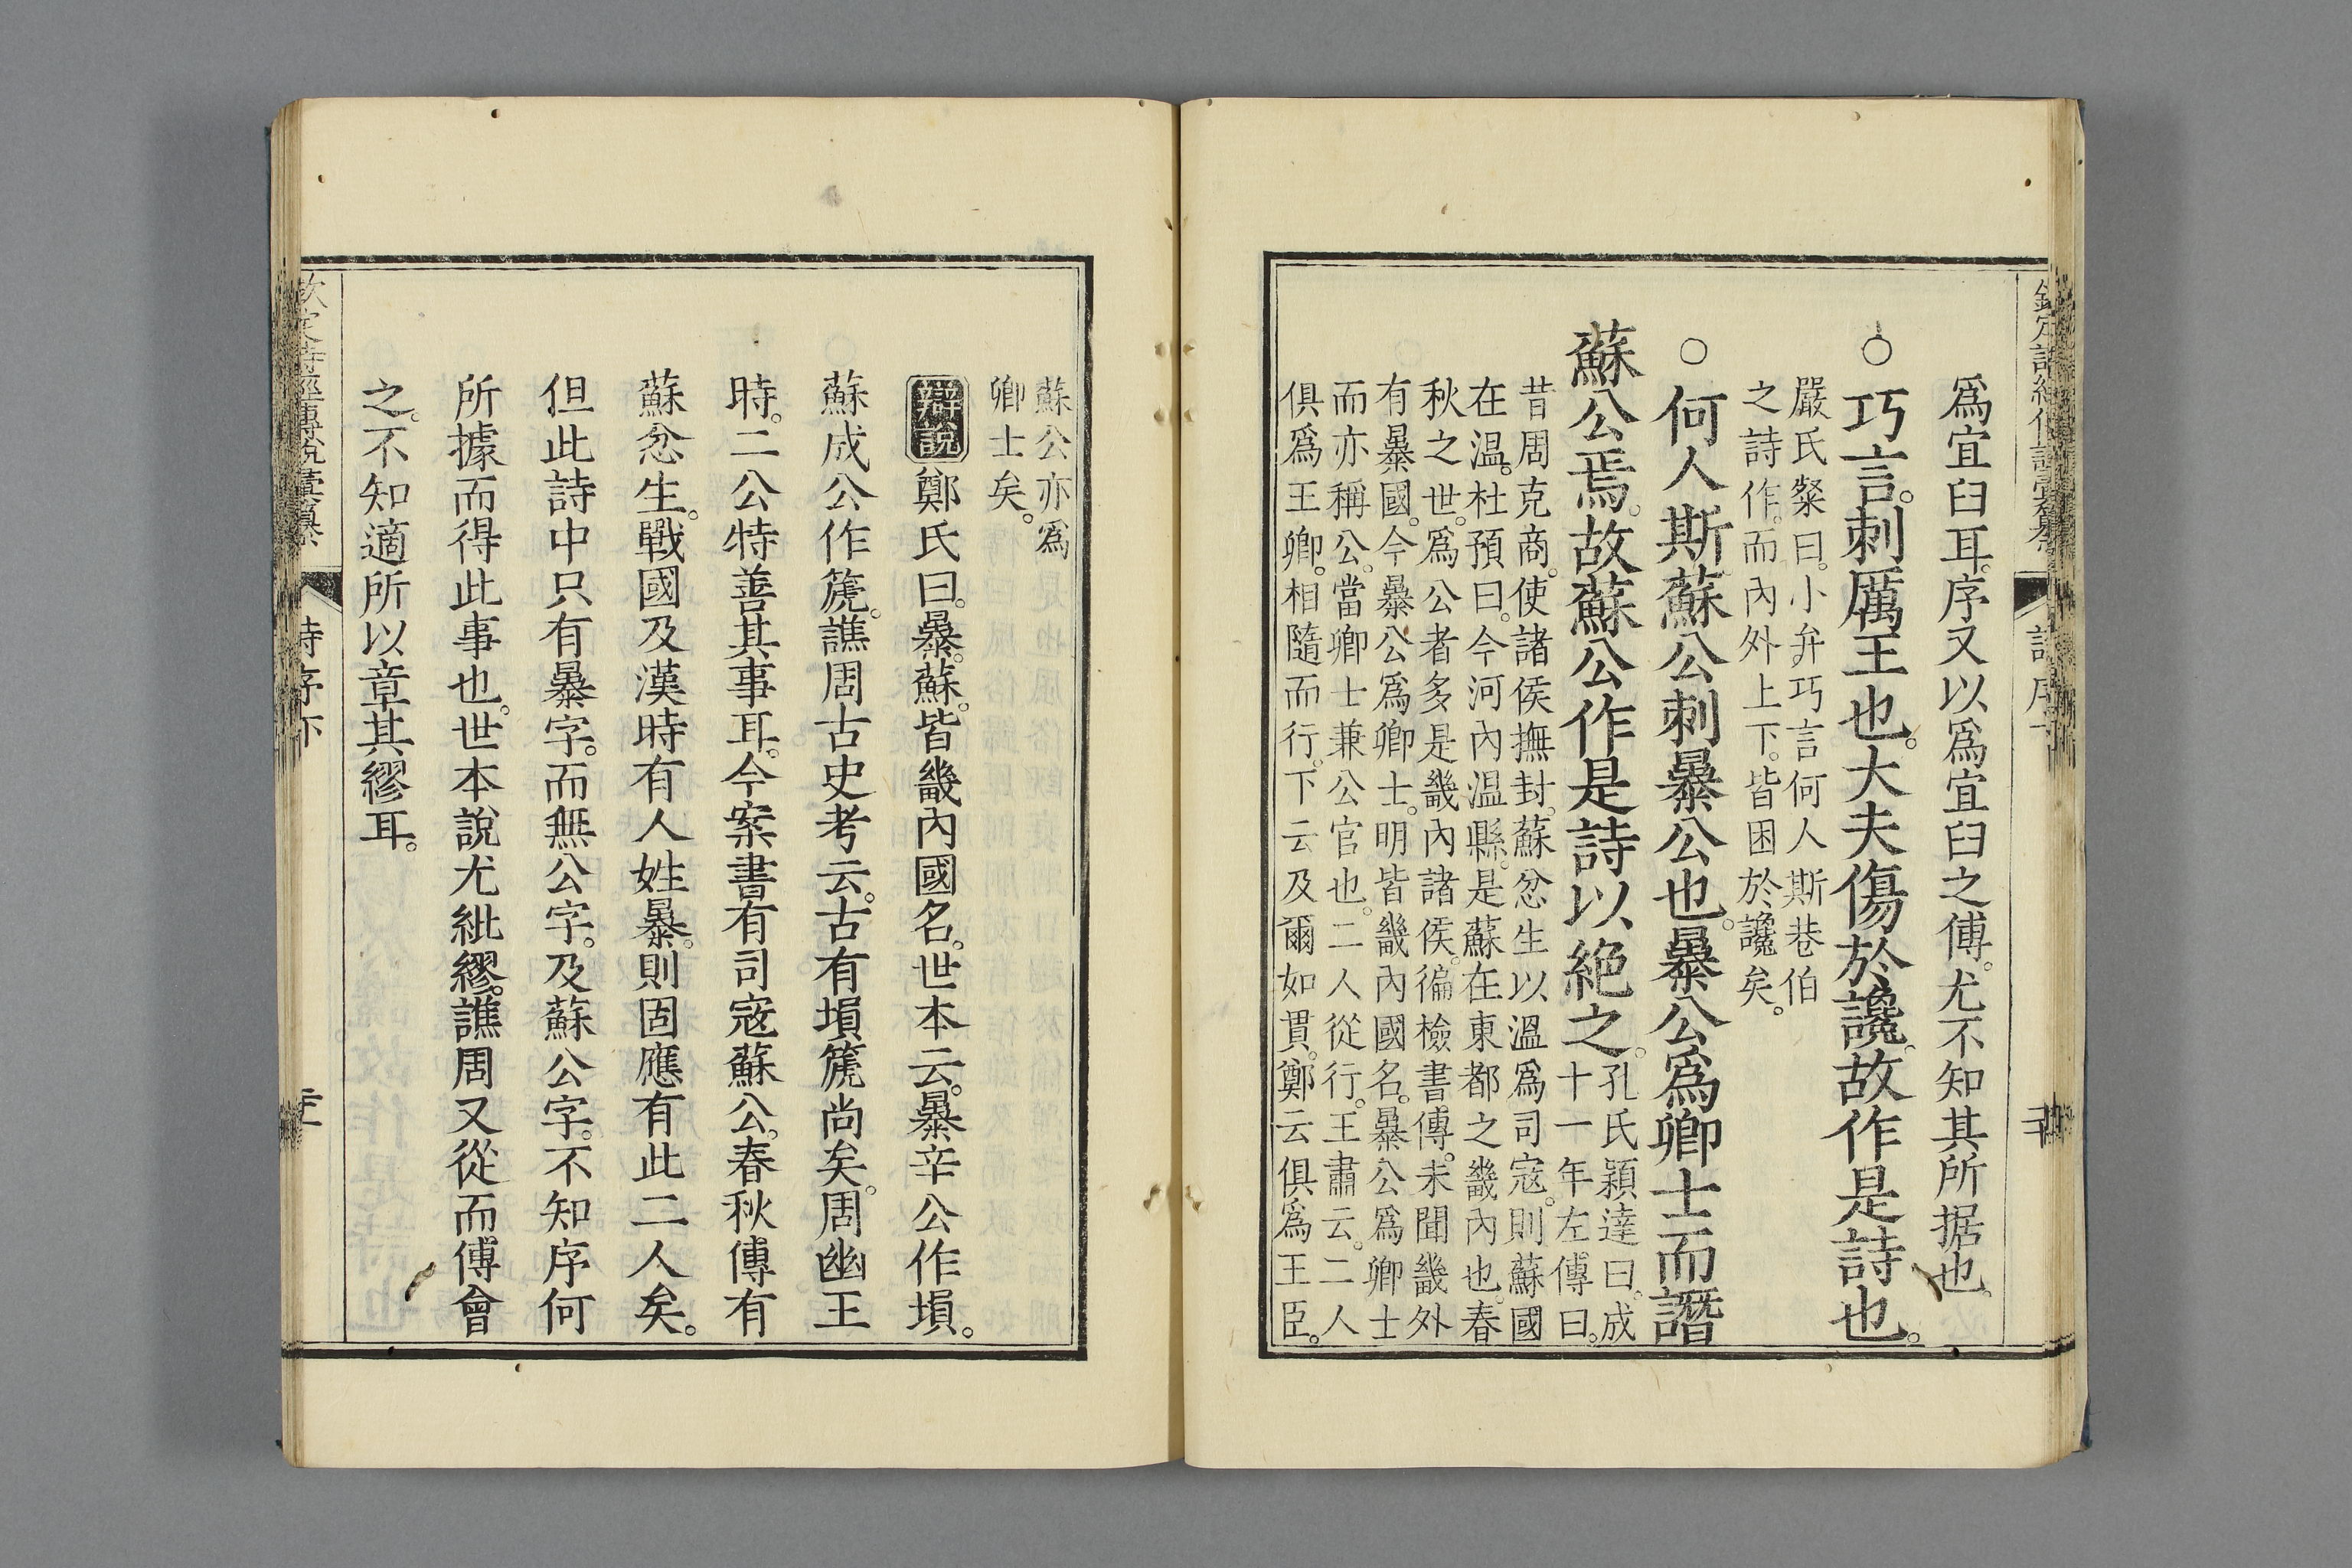 爲宜臼耳。序又以爲宜臼之傅。尤不知其所据也。
○巧言。刺厲王也。大夫傷於讒。故作是詩也。
嚴氏粲曰。小弁。巧言何人斯巷伯
之詩作。而內外上下。皆困於讒矣。
○何人斯蘇公刺暴公也。暴公爲卿士而譖
蘇公焉。故蘇公作是詩以絕之。
孔氏穎達曰。成
十一年左傳曰。
昔周克商。使諸侯撫封。蘇忿生以溫爲司寇。則蘇國
在温。杜預曰。今河內温縣。是蘇在東都之畿內也。春
秋之世。爲公者多是畿內諸侯。徧檢書傳。未聞畿外
有暴國。今暴公爲卿士。明皆畿內國名。暴公爲卿士
而亦稱公。當卿士兼公官也。二人從行。王肅云。二人
俱爲王卿。相隨而行。下云及爾如貫。鄭云俱爲王臣。
詩序下
蘇公亦爲
卿士矣。
辯說 鄭氏曰。暴。蘇。皆畿內國名。世本云。暴辛公作塤。
蘇成公作篪。譙周古史考云。古有塤篪尚矣。周幽王
時。二公特善其事耳。今案書有司寇蘇公。春秋傳有
蘇忿生。戰國及漢時有人姓暴。則固應有此二人矣。
但此詩中只有暴字。而無公字。及蘇公字。不知序何
所據而得此事也。世本說尤紕繆。譙周又從而傅會
之。不知適所以章其繆耳。
欽定詩經傳說彙纂
詩序下